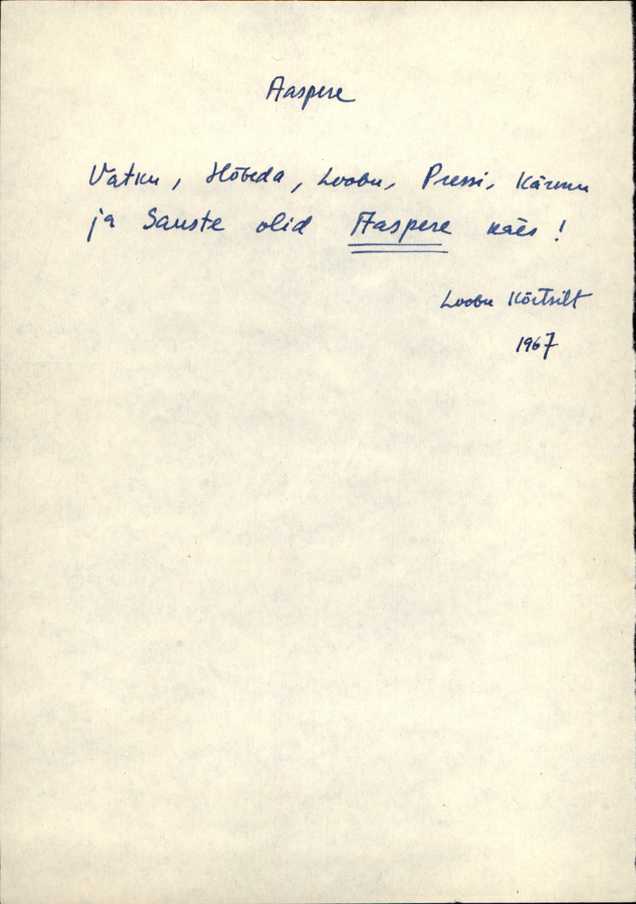 Aaspere
Vatku, Hõbeda, Loobu, Pressi, Kärmu
ja Sauste olid Aaspere käes!
Loobu Kõrtsilt
1967